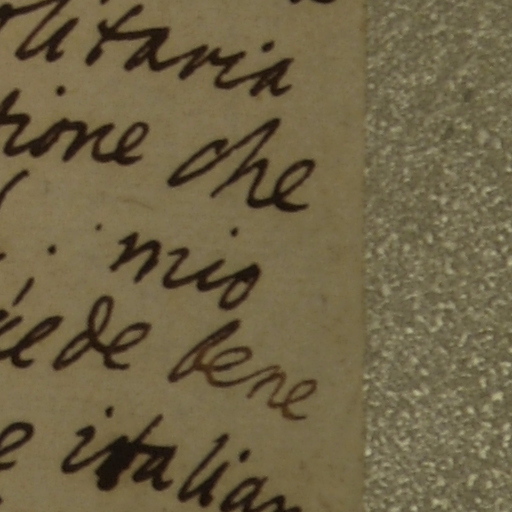 olitaria
zione che
mio
cede bene
e italian